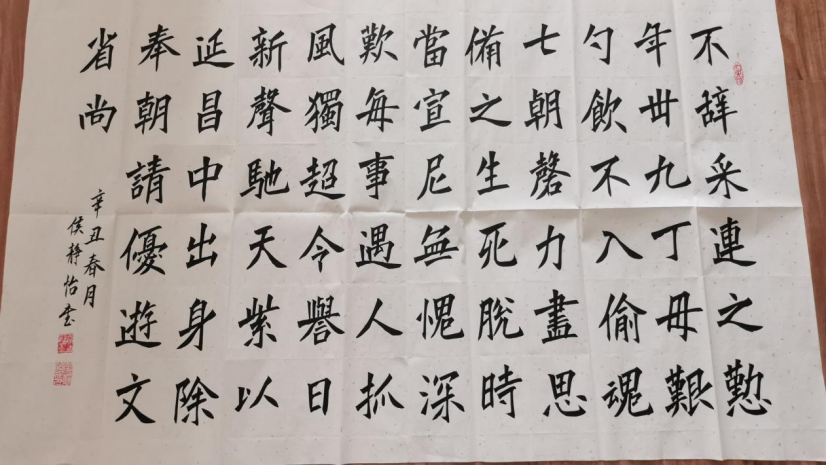 不辞采連之懃
年丗九丁毋艱
勺飲不入偷魂
七朝磬力盡思
備之生死脫時
當宣尼無愧深
歎每事遇人抓
風獨超今譽日
新聲馳天紫以
延昌中出身除
奉朝請優遊文
省尚
辛丑春月
侯静怡书